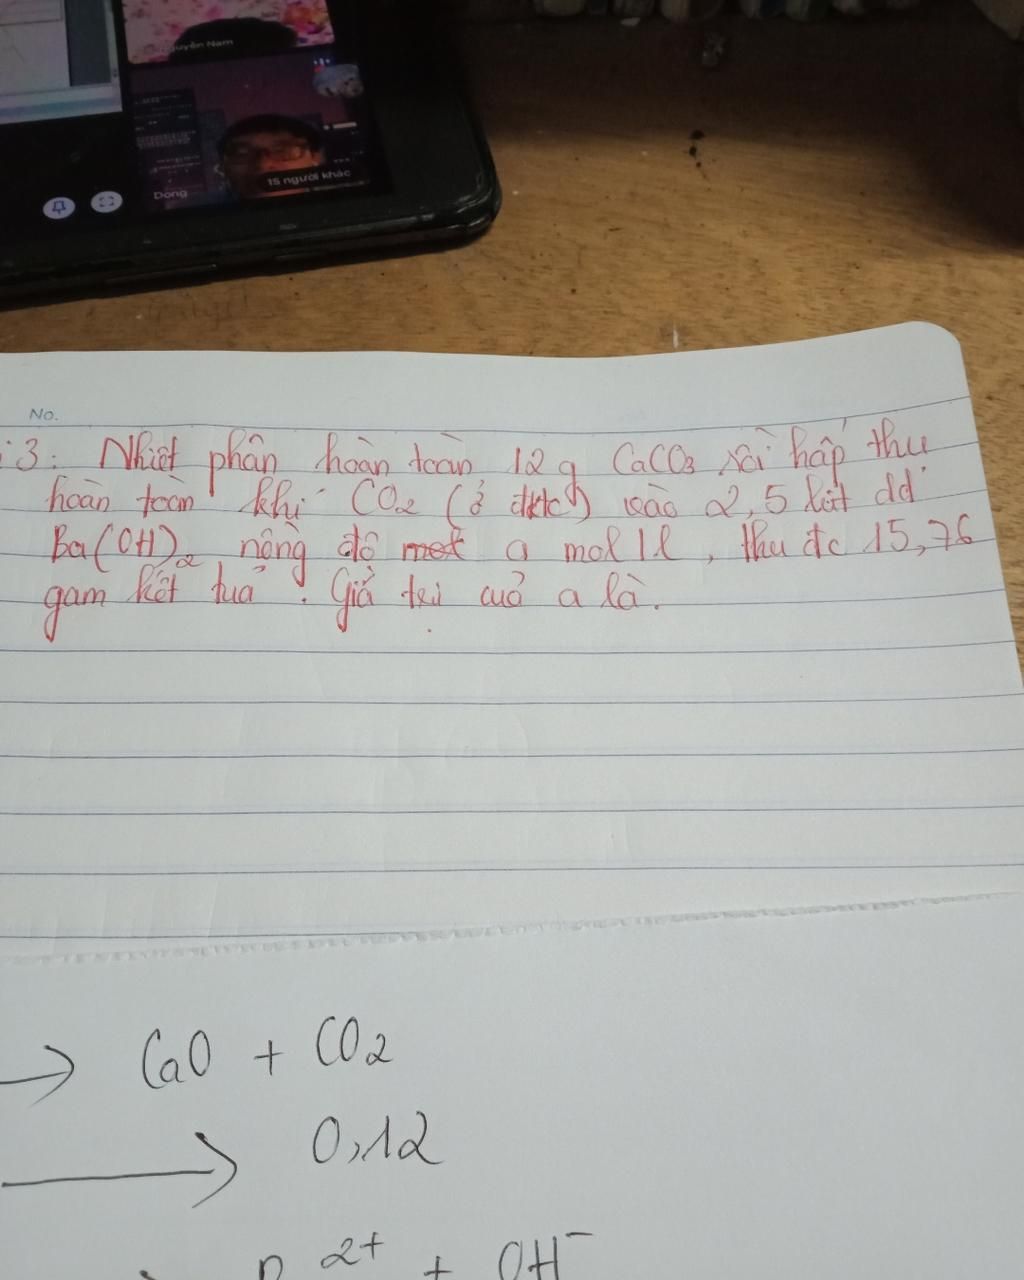 guyên Nam
15 người khác
Dong
No.
i 3: Nhiệt phân hoàn toàn 12 g CaCO3 rồi hấp thu
hoàn toàn khí CO2 (ở đktc) vào 2,5 lít dd
Ba(OH)2 nồng độ a mol/l, thu đc 15,76
gam kết tủa. Giá trị của a là.
→ CaO + CO2
→ 0,12
2+ + OH-